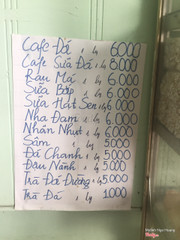 Cafe Đá 1 ly 6000
Cafe Sữa Đá 1 ly 8000
Rau Má 1 ly 6.000
Sữa Bắp 1 ly 6.000
Sữa Hạt Sen 1 ly 6000
Nha Đam 1 ly 6.000
Nhãn Nhục 1 ly 6.000
Sâm 1 ly 5.000
Đá Chanh 1 ly 5.000
Đậu Nành 1 ly 5.000
Trà Đá Đường 1 ly 5.000
Trà Đá 1 ly 1000